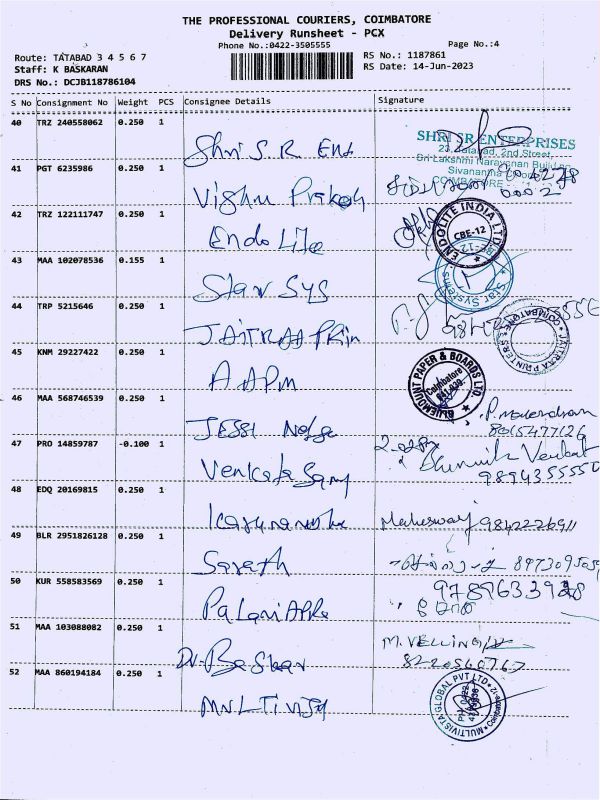 THE PROFESSIONAL COURIERS, COIMBATORE
Delivery Runsheet - PCX
Phone No.:0422-3505555
Page No.:4
Route: TATABAD 3 4 5 6 7
RS No.: 1187861
Staff: K BASKARAN
RS Date: 14-Jun-2023
DRS No.: DCJB118786104
S No Consignment No Weight PCS Consignee Details Signature
40 TRZ 240558062 0.250 1
Shri S R Ent
SHRI SR ENTERPRISES
Tatabad, 2nd Street,
Sri Lakshmi Narayanan Building
Sivanantha
COIMBATORE
41 PGT 6235986 0.250 1
Vishnu Prakash
42 TRZ 122111747 0.250 1
Endo Lite
ENDOLITE INDIA LTD
CBE-12
43 MAA 102078536 0.155 1
Star Sys
Star Systems
44 TRP 5215646 0.250 1
JAITRAA Prin
JAITRAA PRINTERS
COIMBATORE
45 KNM 29227422 0.250 1
A APM
BLUEMOUNT PAPER & BOARDS LTD.
Coimbatore
46 MAA 568746539 0.250 1
JESSI
8015477126
47 PRO 14859787 -0.100 1
Venkata Samy
Venkat
9894355550
48 EDQ 20169815 0.250 1
Maheswary 9842226911
49 BLR 2951826128 0.250 1
Sarath
9789633928
50 KUR 558583569 0.250 1
Palani
51 MAA 103088082 0.250 1
Dr. Baskar
M. VELLING
8220560767
52 MAA 860194184 0.250 1
MULTIVISTA GLOBAL PVT LTD
Coimbatore